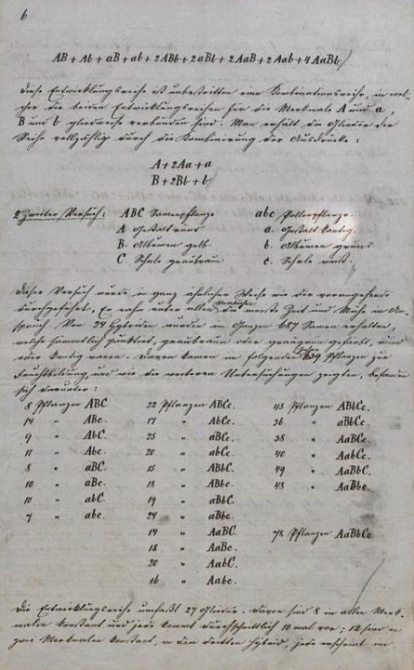 6
AB + Ab + aB + ab + 2ABb + 2aBb + 2AaB + 2Aab + 4AaBb
Diese Entwicklungsreihe ist unbestritten eine Kombinationsreihe, in wel-
cher die beiden Entwicklungsreihen für die Merkmale A und a,
B und b gliedweise verbunden sind. Man erhält die Glieder der
Reihe vollzählig durch die Kombinierung der Ausdrücke:
A + 2Aa + a
B + 2Bb + b
Zweiter Versuch: ABC Samenpflanze abc Pollenpflanze
A. Gestalt rund a. Gestalt kantig
B. Albumen gelb b. Albumen grün
C. Schale graubraun c. Schale weiß.
Dieser Versuch wurde in ganz ähnlicher Weise wie der vorangehende
durchgeführt. Er nahm unter allen Versuchen die meiste Zeit und Mühe in An-
spruch. Von 24 Hybriden wurden im Ganzen 687 Samen erhalten,
welche sämmtlich punktirt, graubraun oder graugrün gefärbt, rund
oder kantig waren. Davon kamen in folgenden Jahre 639 Pflanzen zur
Fruchtbildung, und wie die weiteren Untersuchungen zeigten, befanden
sich darunter:
8 Pflanzen ABC. 22 Pflanzen ABCc. 45 Pflanzen ABbCc.
14 " ABc. 17 " AbCc. 36 " aBbCc.
9 " AbC. 25 " aBCc. 38 " AaBCc.
11 " Abc. 20 " abCc. 40 " AabCc.
8 " aBC. 15 " ABbC. 49 " AaBbC.
10 " aBc. 18 " ABbc. 48 " AaBbc.
10 " abC. 19 " aBbC.
7 " abc. 24 " aBbc.
14 " AaBC. 78 Pflanzen AaBbCc
18 " AaBc.
20 " AabC.
16 " Aabc.
Die Entwicklungsreihe umfaßt 27 Glieder. Davon sind 8 in allen Merk-
malen constant und jede kommt durchschnittlich 10 mal vor; 12 sind in
zwei Merkmalen constant, in dem dritten hybrid, jede erscheint im